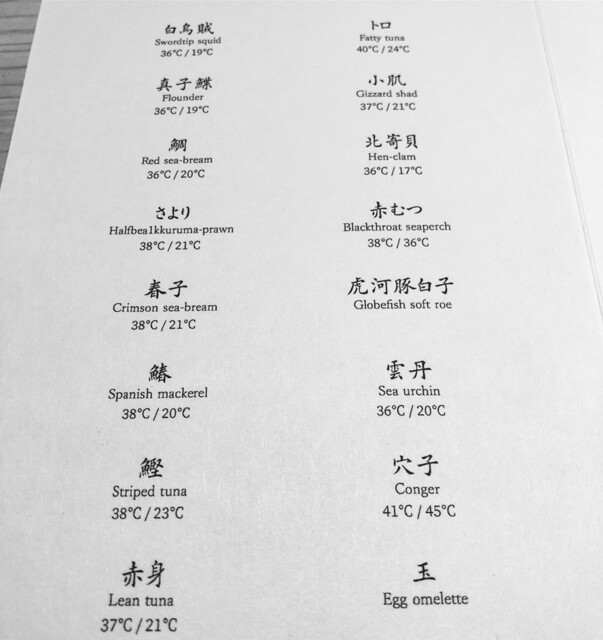 白烏賊
Swordtip squid
36°C / 19°C
真子鰈
Flounder
36°C / 19°C
鯛
Red sea-bream
36°C / 20°C
さより
Halfbea1kkuruma-prawn
38°C / 21°C
春子
Crimson sea-bream
38°C / 21°C
鰆
Spanish mackerel
38°C / 20°C
鰹
Striped tuna
38°C / 23°C
赤身
Lean tuna
37°C / 21°C
トロ
Fatty tuna
40°C / 24°C
小肌
Gizzard shad
37°C / 21°C
北寄貝
Hen-clam
36°C / 17°C
赤むつ
Blackthroat seaperch
38°C / 36°C
虎河豚白子
Globefish soft roe
雲丹
Sea urchin
36°C / 20°C
穴子
Conger
41°C / 45°C
玉
Egg omelette